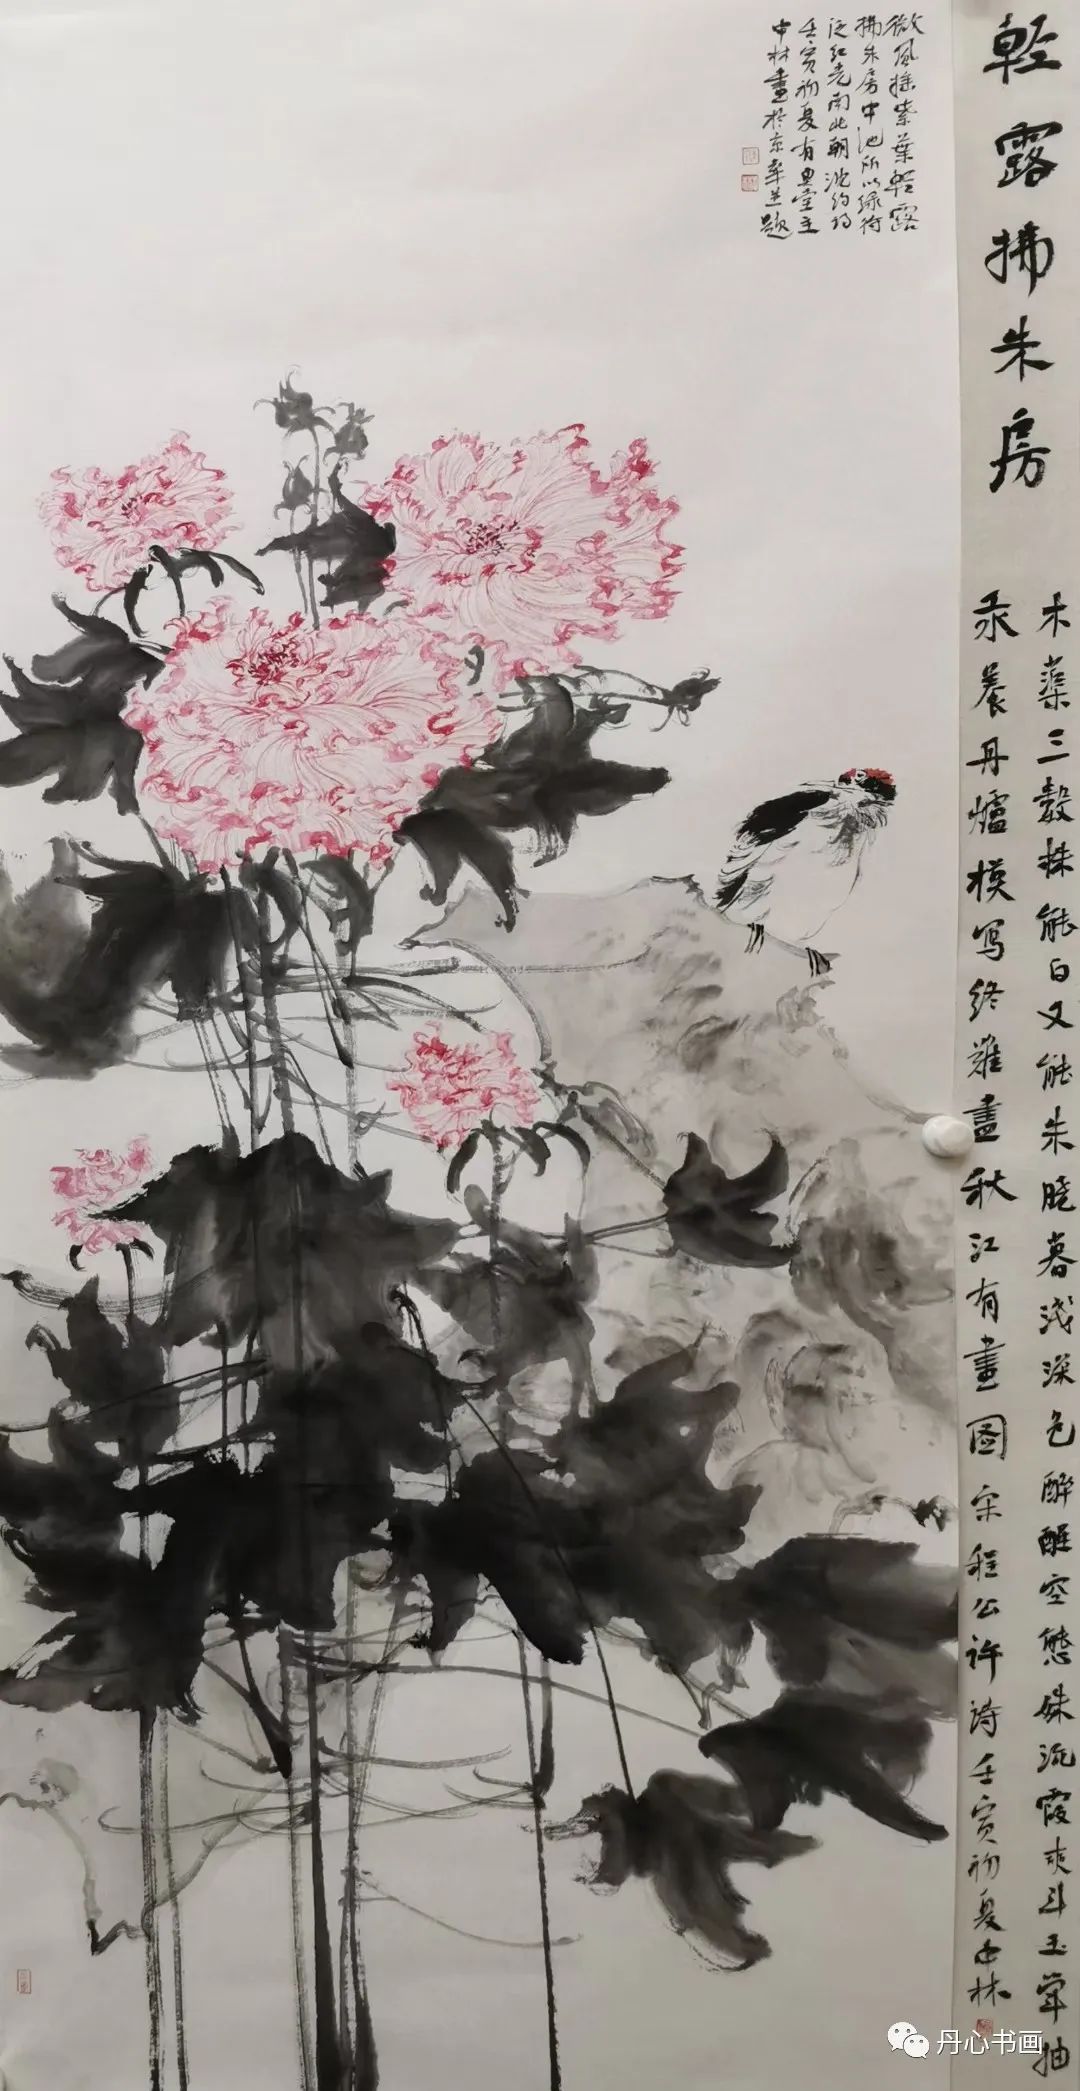 輕露拂朱房
木蕖三數株能白又能朱曉暮浅深色醉醒空態姝流霞爽斗玉掌抽
汞養丹爐模写终難畫秋江有畫图宋程公许诗壬寅初夏中林
微風摇紫葉輕露
拂朱房中池所以绿待
泛红光南北朝沈约詩
壬寅初夏有堂主
中林畫於京華並題
丹心书画